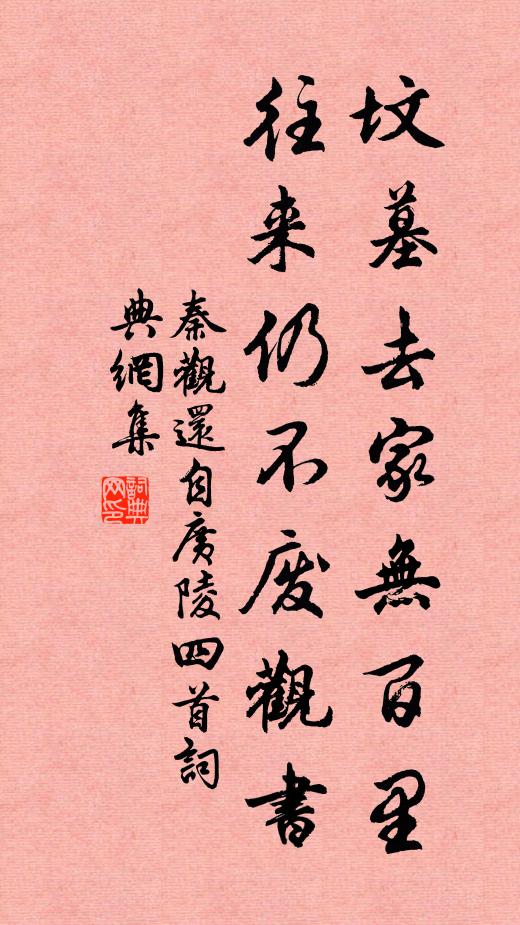 坟墓去家無百里
往来仍不废觀書
秦觀還自廣陵四首詞
典網集
詞典网印